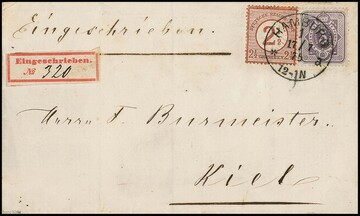 Eingeschrieben.
Eingeschrieben.
№ 320
2½ 2½
HAMBURG
12-1N
Herrn F. Burmeister.
Kiel